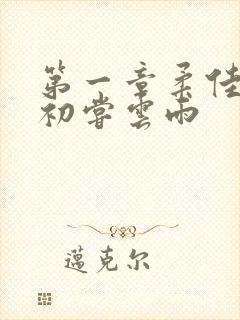 第一章柔佳
初尝雲雨
邁克尔